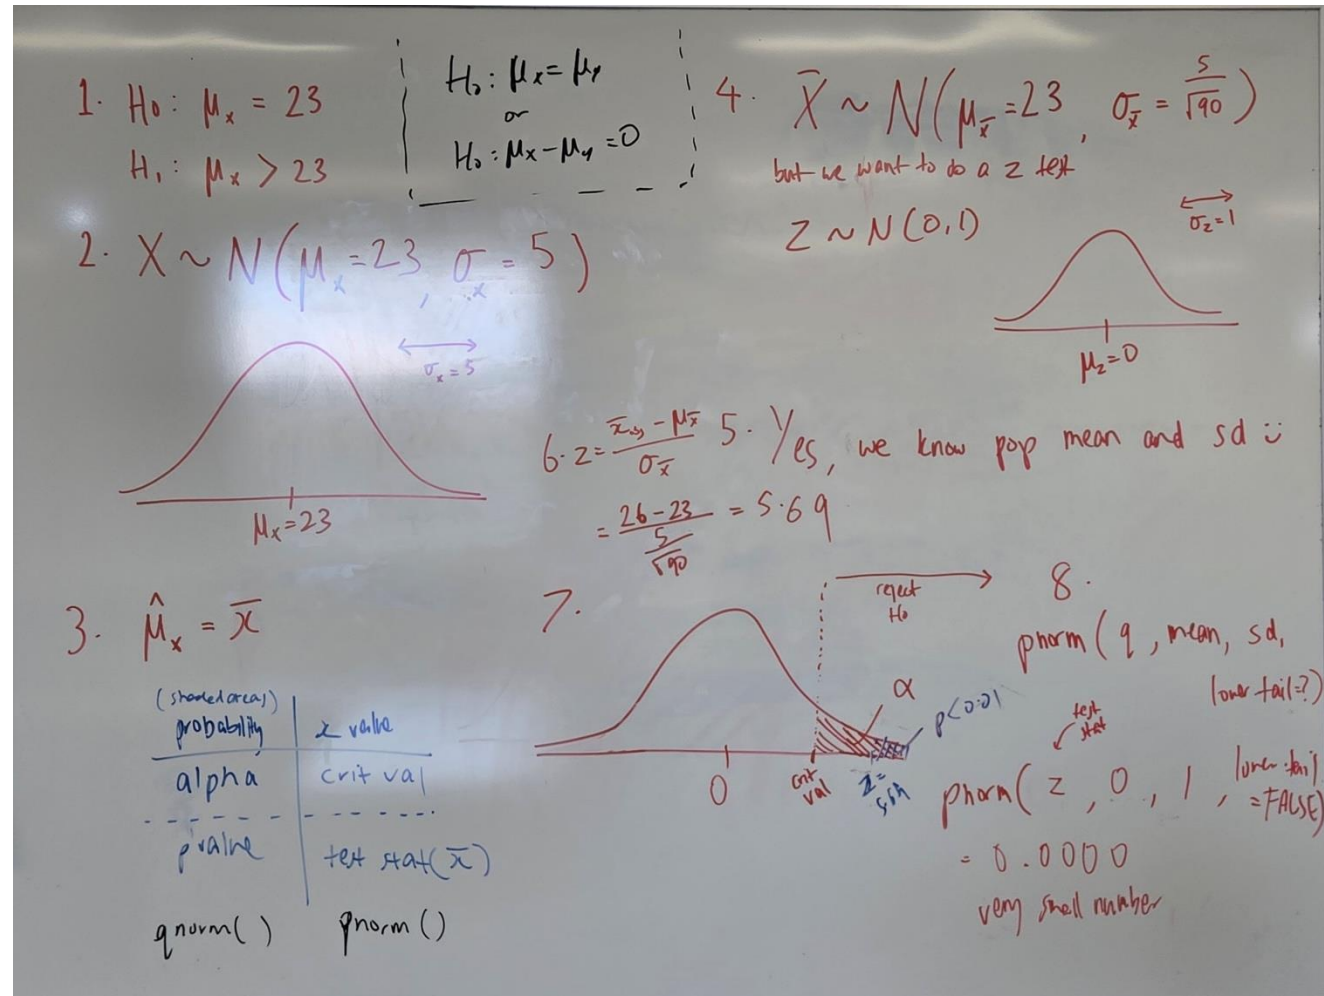 1. H₀: μₓ = 23
H₁: μₓ > 23
H₀: μₓ = μᵧ
or
H₀: μₓ - μᵧ = 0
2. X ~ N(μₓ = 23, σₓ = 5)
σₓ = 5
μₓ = 23
3. μ̂ₓ = x̄
(shaded areas)
probability | x value
alpha | crit val
pvalue | test stat (x̄)
qnorm() pnorm()
4. X̄ ~ N(μ_x̄ = 23, σ_x̄ = 5/√90)
but we want to do a z test
Z ~ N(0,1)
σ_z = 1
μ_z = 0
5. Yes, we know pop mean and sd ü
6. z = (x̄ - μ_x̄)/σ_x̄
= (26-23)/(5/√90) = 5.69
7.
reject
H₀
α
p<0.01
0
crit
val
z=
5.69
8.
pnorm(q, mean, sd,
lower tail=?)
test
stat
pnorm(z, 0, 1, lower.tail
=FALSE)
= 0.0000
very small number